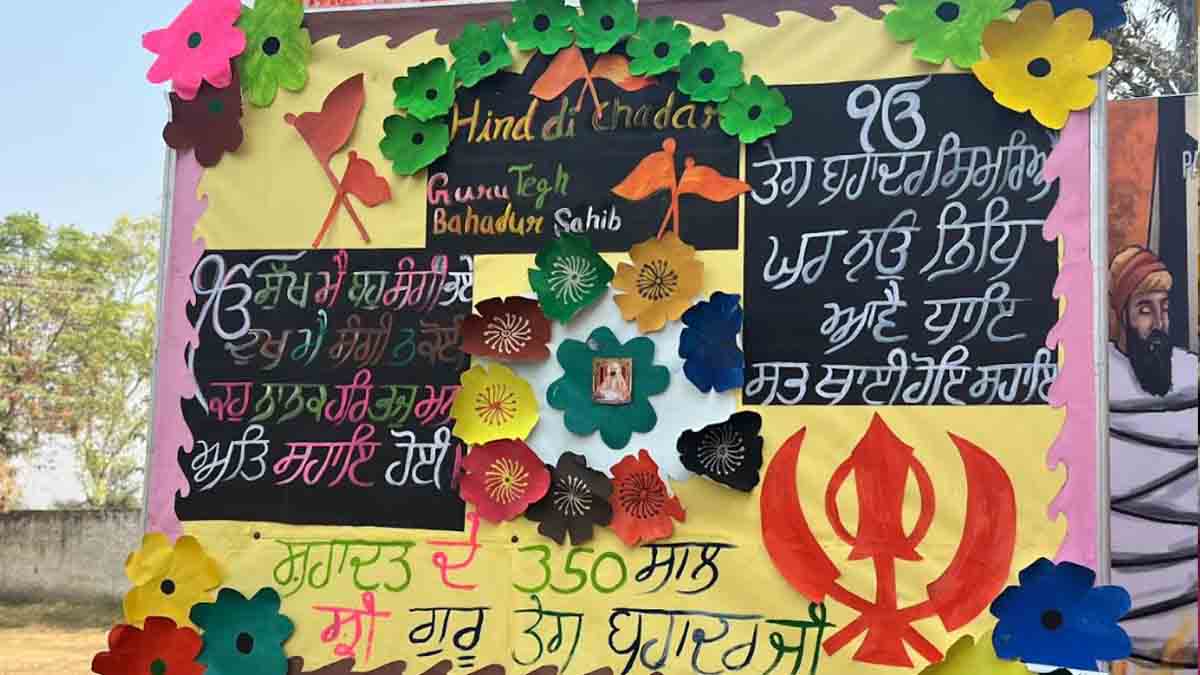 Hind di Chadar
Guru Tegh
Bahadur Sahib
ੴ
ਤੇਗ ਬਹਾਦਰ ਸਿਮਰਿਐ
ਘਰ ਨਉ ਨਿਧਿ
ਆਵੈ ਧਾਇ
ਸਭ ਥਾਈ ਹੋਇ ਸਹਾਇ
ੴ ਸੁੱਖ ਮੈ ਬਹੁ ਸੰਗੀ ਭਏ
ਦੁਖ ਮੈ ਸੰਗੀ ਨ ਕੋਈ
ਕਹੁ ਨਾਨਕ ਹਰਿ ਭਜੁ ਮਨਾ
ਅਤਿ ਸਹਾਇ ਹੋਈ ॥
ਸ਼ਹਾਦਤ ਦੇ 350 ਸਾਲ
ਸ਼੍ਰੀ ਗੁਰੂ ਤੇਗ ਬਹਾਦਰ ਜੀ